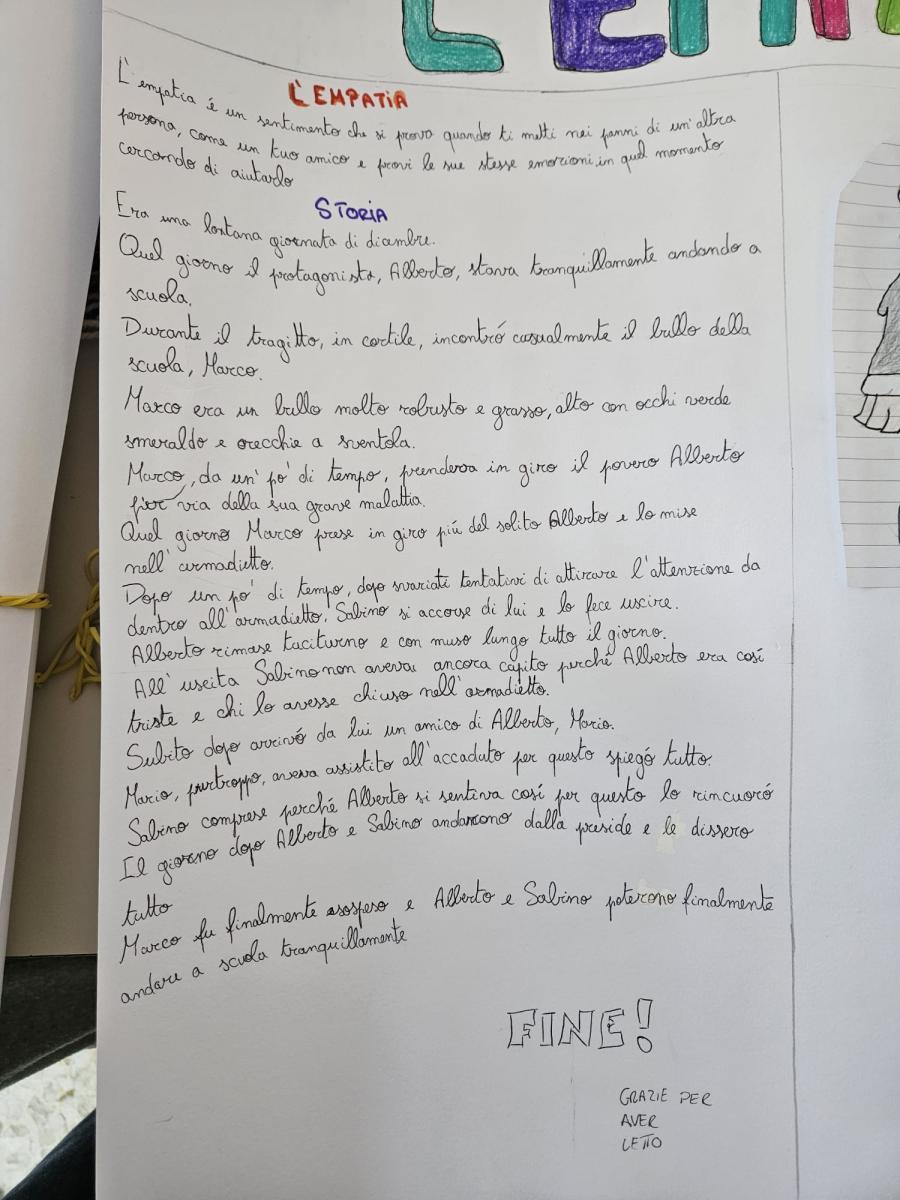 L'EMPATIA
L'empatia é un sentimento che si prova quando ti metti nei panni di un'altra
persona, come un tuo amico e provi le sue stesse emozioni in quel momento
cercando di aiutarlo
STORIA
Era una lontana giornata di dicembre.
Quel giorno il protagonista, Alberto, stava tranquillamente andando a
scuola.
Durante il tragitto, in cortile, incontró casualmente il bullo della
scuola, Marco.
Marco era un bullo molto robusto e grasso, alto con occhi verde
smeraldo e orecchie a sventola.
Marco, da un' po' di tempo, prendeva in giro il povero Alberto
per via della sua grave malattia.
Quel giorno Marco prese in giro piú del solito Alberto e lo mise
nell'armadietto.
Dopo un po' di tempo, dopo svariati tentativi di attirare l'attenzione da
dentro all'armadietto, Sabino si accorse di lui e lo fece uscire.
Alberto rimase taciturno e con muso lungo tutto il giorno.
All'uscita Sabino non aveva ancora capito perché Alberto era cosí
triste e chi lo avesse chiuso nell'armadietto.
Subito dopo arrivó da lui un amico di Alberto, Mario.
Mario, purtroppo, aveva assistito all'accaduto per questo spiegó tutto.
Sabino comprese perché Alberto si sentiva cosí per questo lo rincuoró
Il giorno dopo Alberto e Sabino andarono dalla preside e le dissero
tutto
Marco fu finalmente sospeso e Alberto e Sabino poterono finalmente
andare a scuola tranquillamente
FINE!
GRAZIE PER
AVER
LETTO